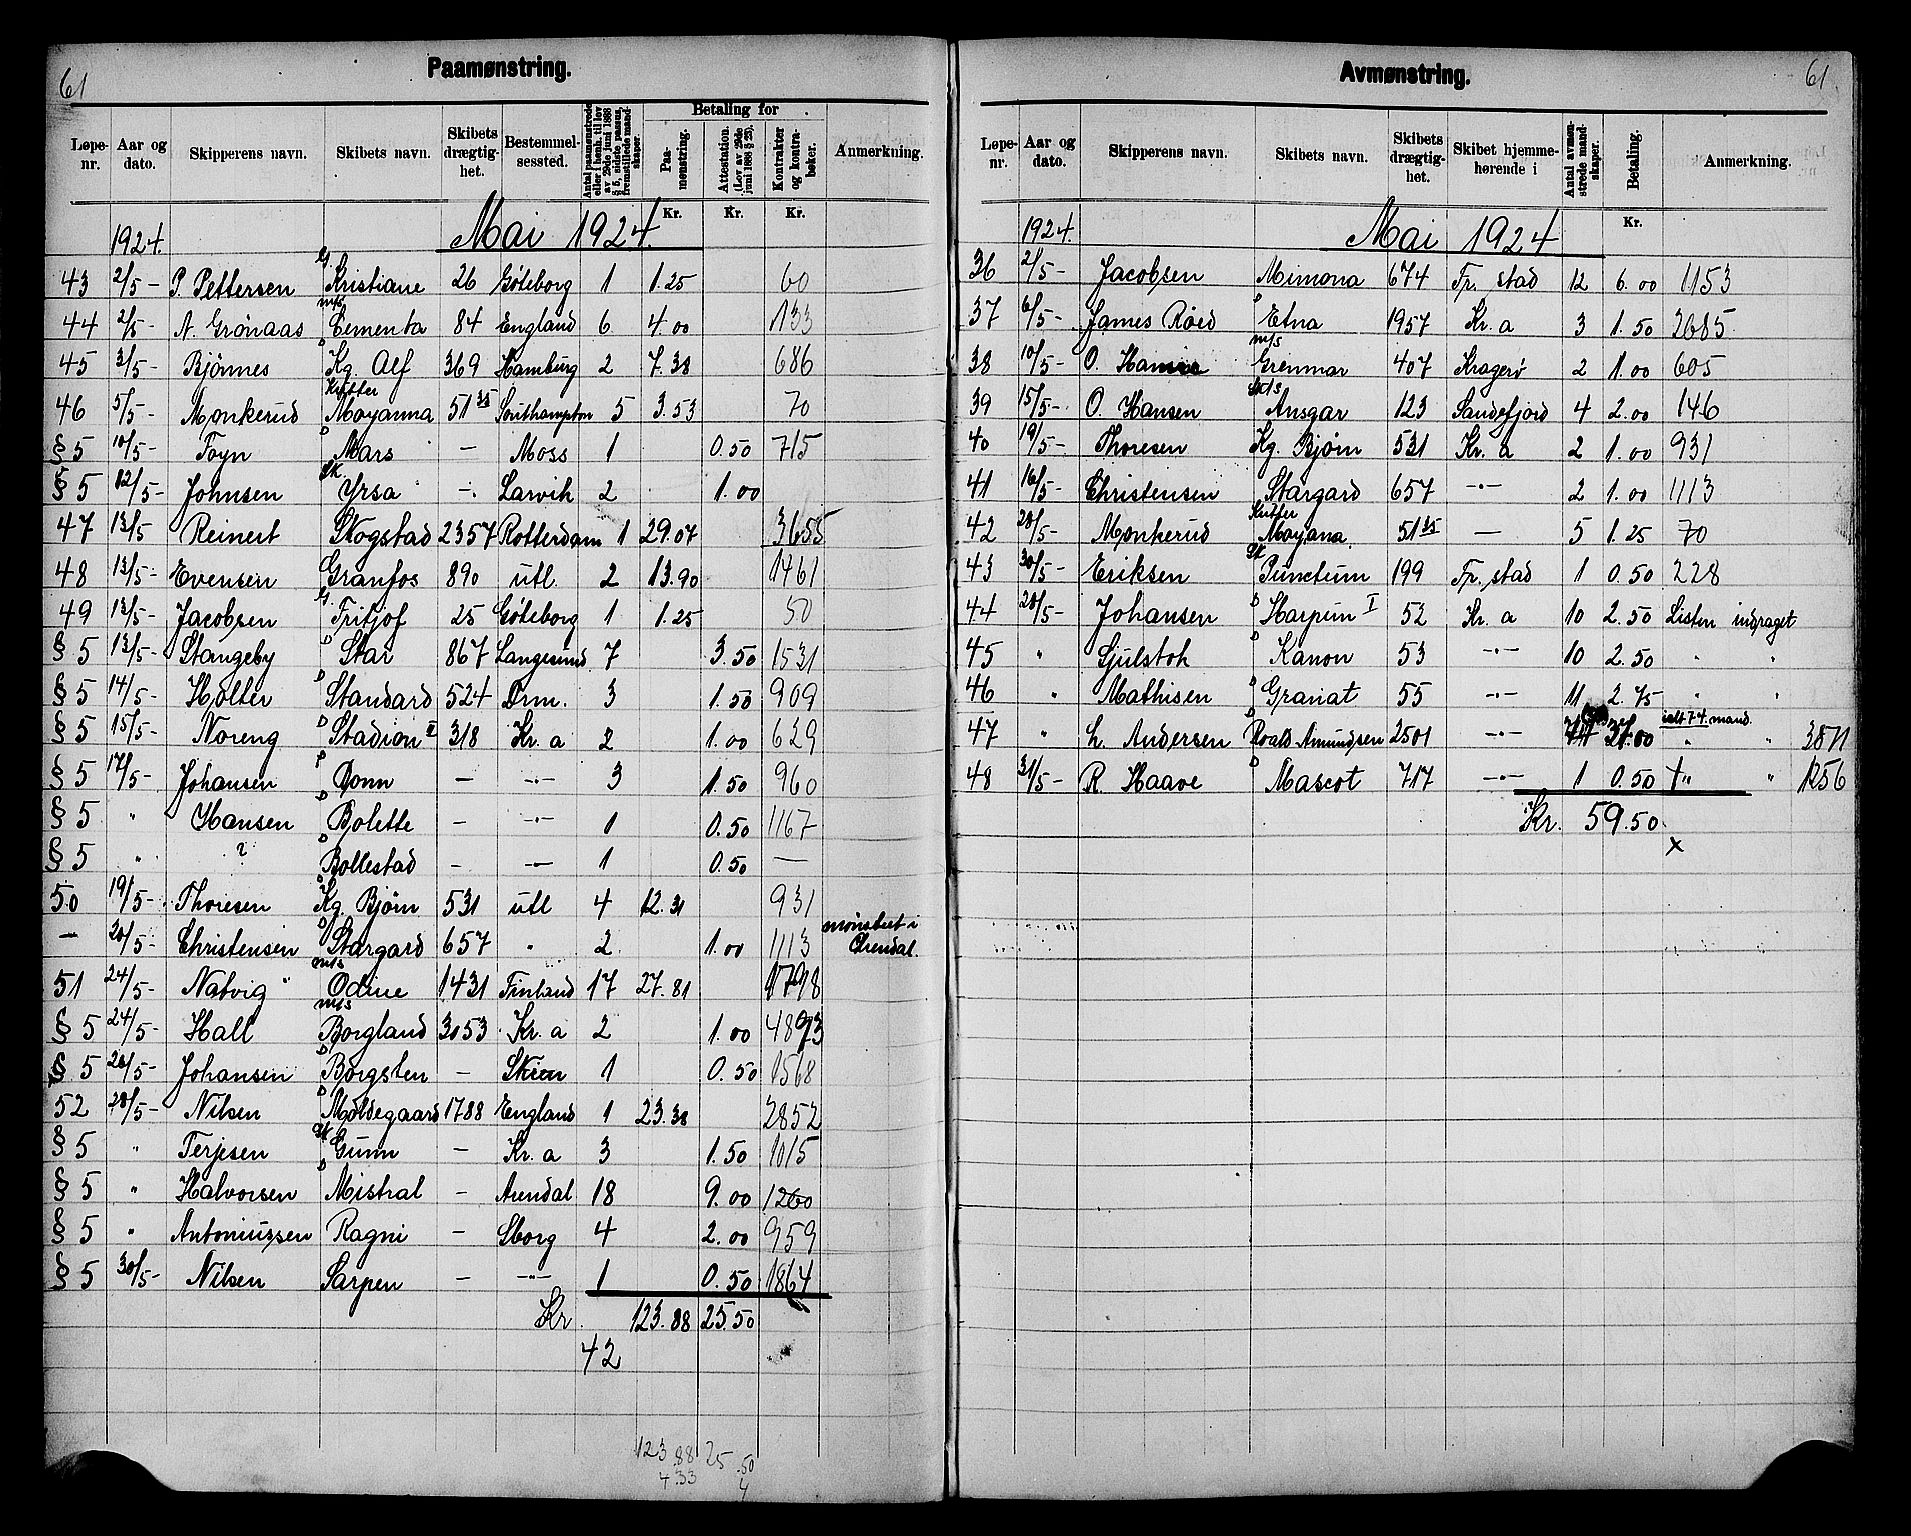 61
Paamønstring.
Løpe-nr. Aar og dato. Skipperens navn. Skibets navn. Skibets drægtig-het. Bestemmel-sessted. Antal paamønstrede eller i henh. til lov av 29de juni 1888 § 5, sidste passus, fremstillede mand-skaper. Betaling for Paa-mønstring. Attestation. (Lov av 29de juni 1888 § 25), Kontrakter og kontra-bøker. Anmerkning.
Kr. Kr. Kr.
1924. Mai 1924.
43 2/5- P. Pettersen G. Kristiane 26 Göteborg 1 1.25 60
44 2/5- N. Grønaas m/s Cementa 84 England 6 4.00 133
45 3/5- Bjønnes D Kg. Alf 369 Hamburg 2 7.38 686
46 5/5- Monkerud Kutter Moyanna 51 35 Southampton 5 3.53 70
§ 5 10/5- Foyn D Mars - Moss 1 0.50 715
§ 5 12/5- Johnsen Sk Yrsa - Larvik 2 1.00
47 13/5- Reinert Skogstad 2357 Rotterdam 1 29.07 3655
48 13/5- Evensen Granfos 890 utl. 2 13.90 1461
49 13/5- Jacobsen G. Fritjof 25 Göteborg 1 1.25 50
§ 5 13/5- Stangeby D Star 867 Langesund 7 3.50 1531
§ 5 14/5- Holter D Standard 524 Drm. 3 1.50 909
§ 5 15/5- Noreng D Stadion II 318 Kr. a 2 1.00 629
§ 5 17/5- Johansen D Donn - -"- 3 1.50 960
§ 5 " Hansen D Bolette - -"- 1 0.50 1167
§ 5 " ? D Bollestad - -"- 1 0.50 -
50 19/5- Thoresen D Kg. Bjørn 531 utl 4 12.31 931
- 20/5- Christensen D Stargard 657 " 2 1.00 1113 mønstret i Arendal.
51 24/5- Natvig m/s Odine 1431 Finland 17 27.81 1798
§ 5 24/5- Hall m/s Borgland 3053 Kr. a 2 1.00 4893
§ 5 26/5- Johansen D Borgsten - Skien 1 0.50 1568
52 28/5- Nilsen D Moldegaard 1788 England 1 23.38 2852
§ 5 " Terjesen Sk Gunn - Kr. a 3 1.50 1015
§ 5 " Halvorsen D Mistral - Arendal 18 9.00 1260
§ 5 " Antoniussen Ragni - Sborg 4 2.00 959
§ 5 30/5- Nilsen Sarpen - -"- 1 0.50 1864
Kr. 123.88 25.50
42
123.88 25.50
4.33 4
Avmønstring.
61
Løpe-nr. Aar og dato. Skipperens navn. Skibets navn. Skibets drægtig-het. Skibet hjemme-hørende i Antal avmøn-strede mand-skaper. Betaling. Anmerkning.
Kr.
1924. Mai 1924
36 2/5- Jacobsen Mimona 674 Fr. stad 12 6.00 1153
37 6/5- James Røed D Etna 1957 Kr. a 3 1.50 2685
38 10/5- O. m/s Grenmar 407 Kragerø 2 1.00 605
39 15/5- O. Hansen Ansgar 123 Sandefjord 4 2.00 146
40 19/5- Thoresen Kg. Bjørn 531 Kr. a 2 1.00 931
41 16/5- Christensen Stargard 657 -"- 2 1.00 1113
42 28/5- Monkerud Kutter Moyana 51 35 - 5 1.25 70
43 30/5- Eriksen Sk Punctum 199 Fr. stad 1 0.50 228
44 28/5- Johansen D Harpun I 52 Kr. a 10 2.50 Listen indraget
45 " Gjulstoh D Kanon 53 -"- 10 2.50 " "
46 " Mathisen D Granat 55 -"- 11 2.75 " "
47 " L. Andersen D Roald Amundsen 2501 -"- 37.00 ialt 74 mand. " " 3871
48 31/5- R. Haave D Mascot 717 -"- 1 0.50 + " " 1256
Kr. 59.50
x